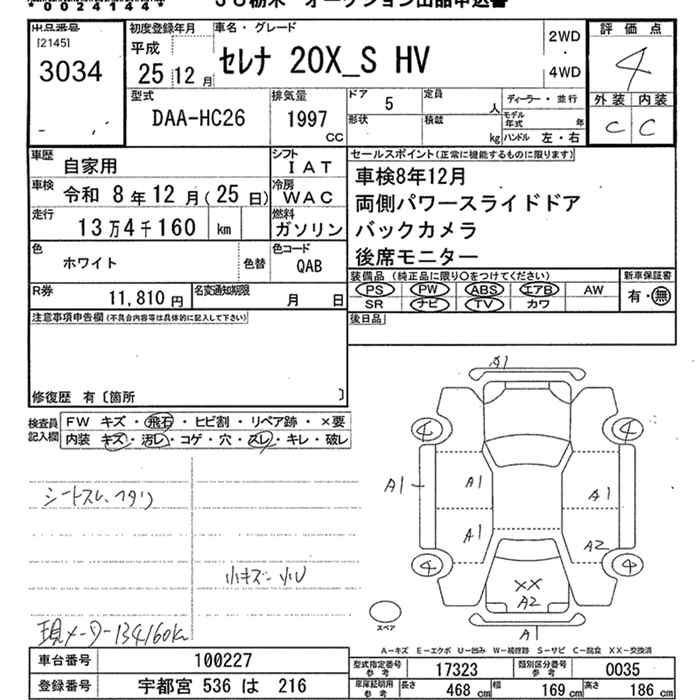 *0024144*
JU栃木 オークション出品申込書
出品番号
[2145]
3034
初度登録年月
平成
25年12月
車名・グレード
セレナ 20X_S HV
2WD
・
4WD
評価点
4
外装 内装
C C
型式
DAA-HC26
排気量
1997
CC
ドア 5
定員 人
形状
積載 kg
ディーラー・並行
モデル年式 年
ハンドル 左・右
車歴
自家用
シフト
IAT
車検 令和 8年12月(25日)
冷房
WAC
走行
13万4千160 km
燃料
ガソリン
色
ホワイト
色替
色コード
QAB
R券
11,810円
名変通知期限
月 日
セールスポイント(正常に機能するものに限ります)
車検8年12月
両側パワースライドドア
バックカメラ
後席モニター
装備品 (純正品に限り○をつけてください)
PS PW ABS エアB AW
SR ナビ TV カワ
新車保証書
有・無
後日品
注意事項申告欄(不具合内容等は具体的に記入して下さい)
修復歴 有〔箇所 〕
検査員記入欄
FW キズ・飛石・ヒビ割・リペア跡・×要
内装 キズ・汚レ・コゲ・穴・スレ・キレ・破レ
シートスレ、ヘタリ
小キズ 小U
現メーター134160km
A1
4
4
A1
A1
A1
A1
A2
4
4
XX
A2
A1
スペア
A-キズ E-エクボ U-凹み W-補修跡 S-サビ C-腐食 XX-交換済
車台番号 100227
登録番号 宇都宮 536 は 216
型式指定番号参考 17323
類別区分番号参考 0035
車庫証明用参考 長さ 468 cm 幅 169 cm 高さ 186 cm